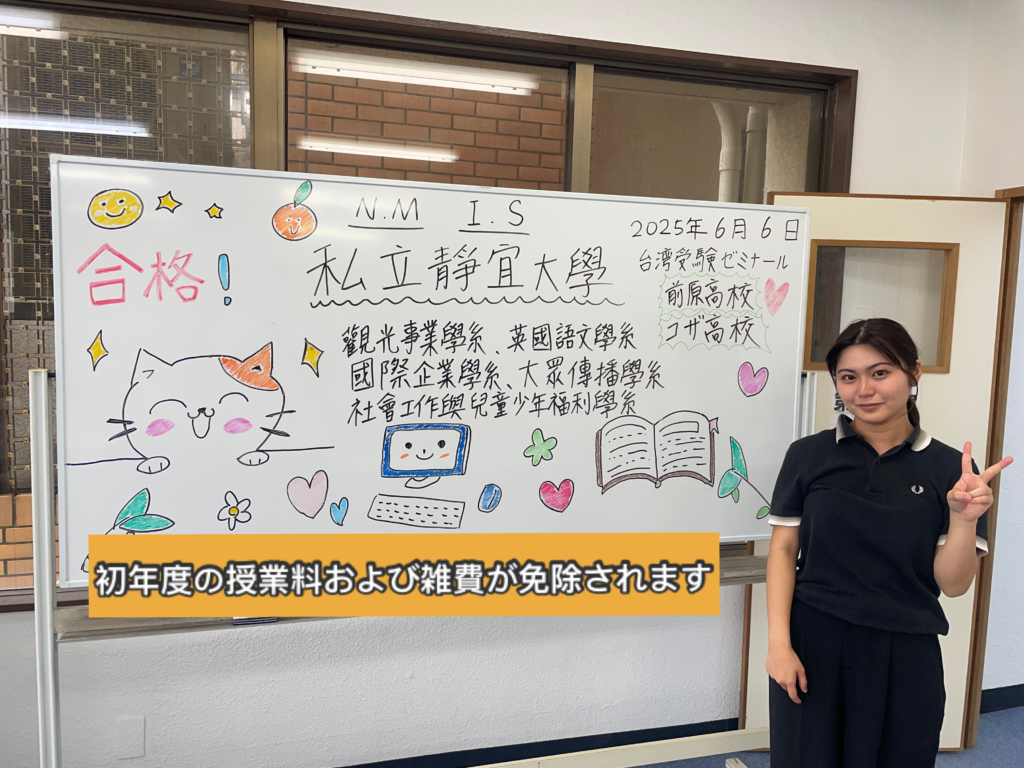 N.M I.S
2025年6月6日
合格!
私立靜宜大學
台湾受験ゼミナール
前原高校
コザ高校
觀光事業學系、英國語文學系
國際企業學系、大眾傳播學系
社會工作與兒童少年福利學系
初年度の授業料および雑費が免除されます